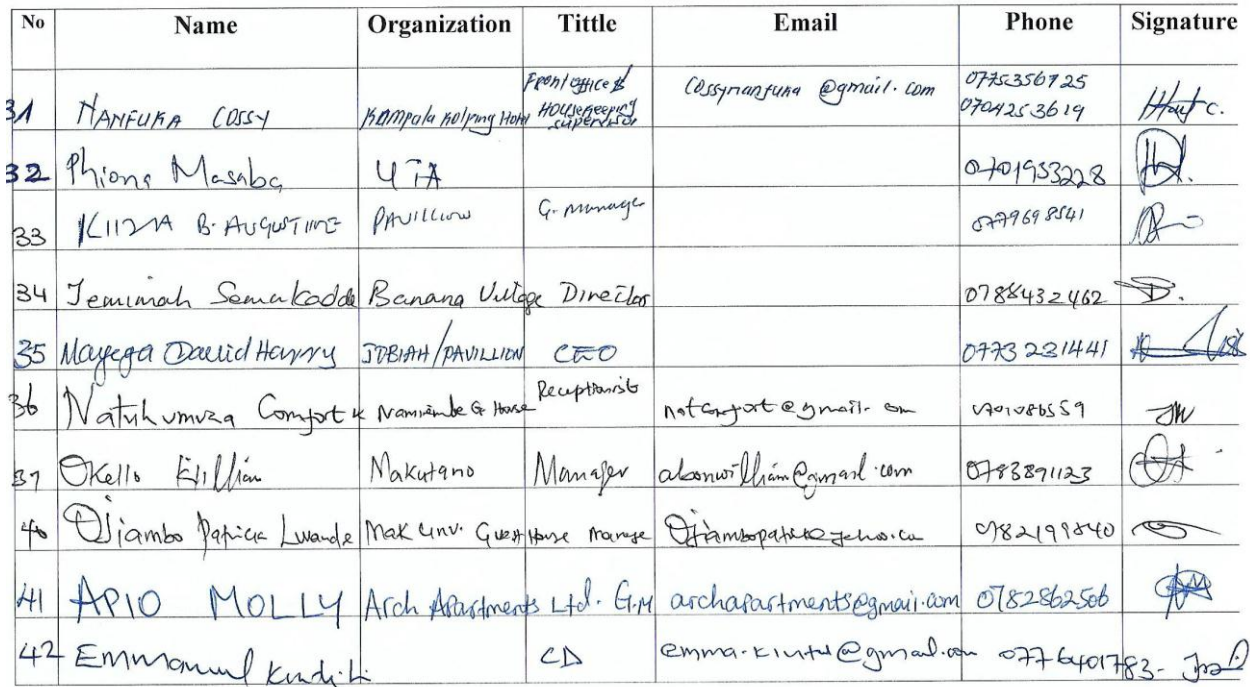 No Name Organization Tittle Email Phone Signature
31 NANFUKA COSSY Kampala Kolping Hotel Front office & Housekeeping supervisor cossynanfuka@gmail.com 0775356725 0704253619
32 Phiona Masaba UTA 0701953228
33 KIIZA B. AUGUSTINE PAVILLION G. manager 0779698541
34 Jemimah Semakadde Banana Village Director 0788432462
35 Mayega David Harry JOBIAH/PAVILLION CEO 0773231441
36 Natukumuza Comfort K Namirembe G House Receptionist natcomfort@gmail.com 0701086559
37 Okello Manager Makutano abonwillliam@gmail.com 0783891123
40 Ojiambo Patrick Lwande Mak Univ. Guest House Manage 0782199840
41 APIO MOLLY Arch Apartments Ltd. G.M archapartments@gmail.com 0782862506
42 Emmanuel CD emma.kintu@gmail.com 0776401783